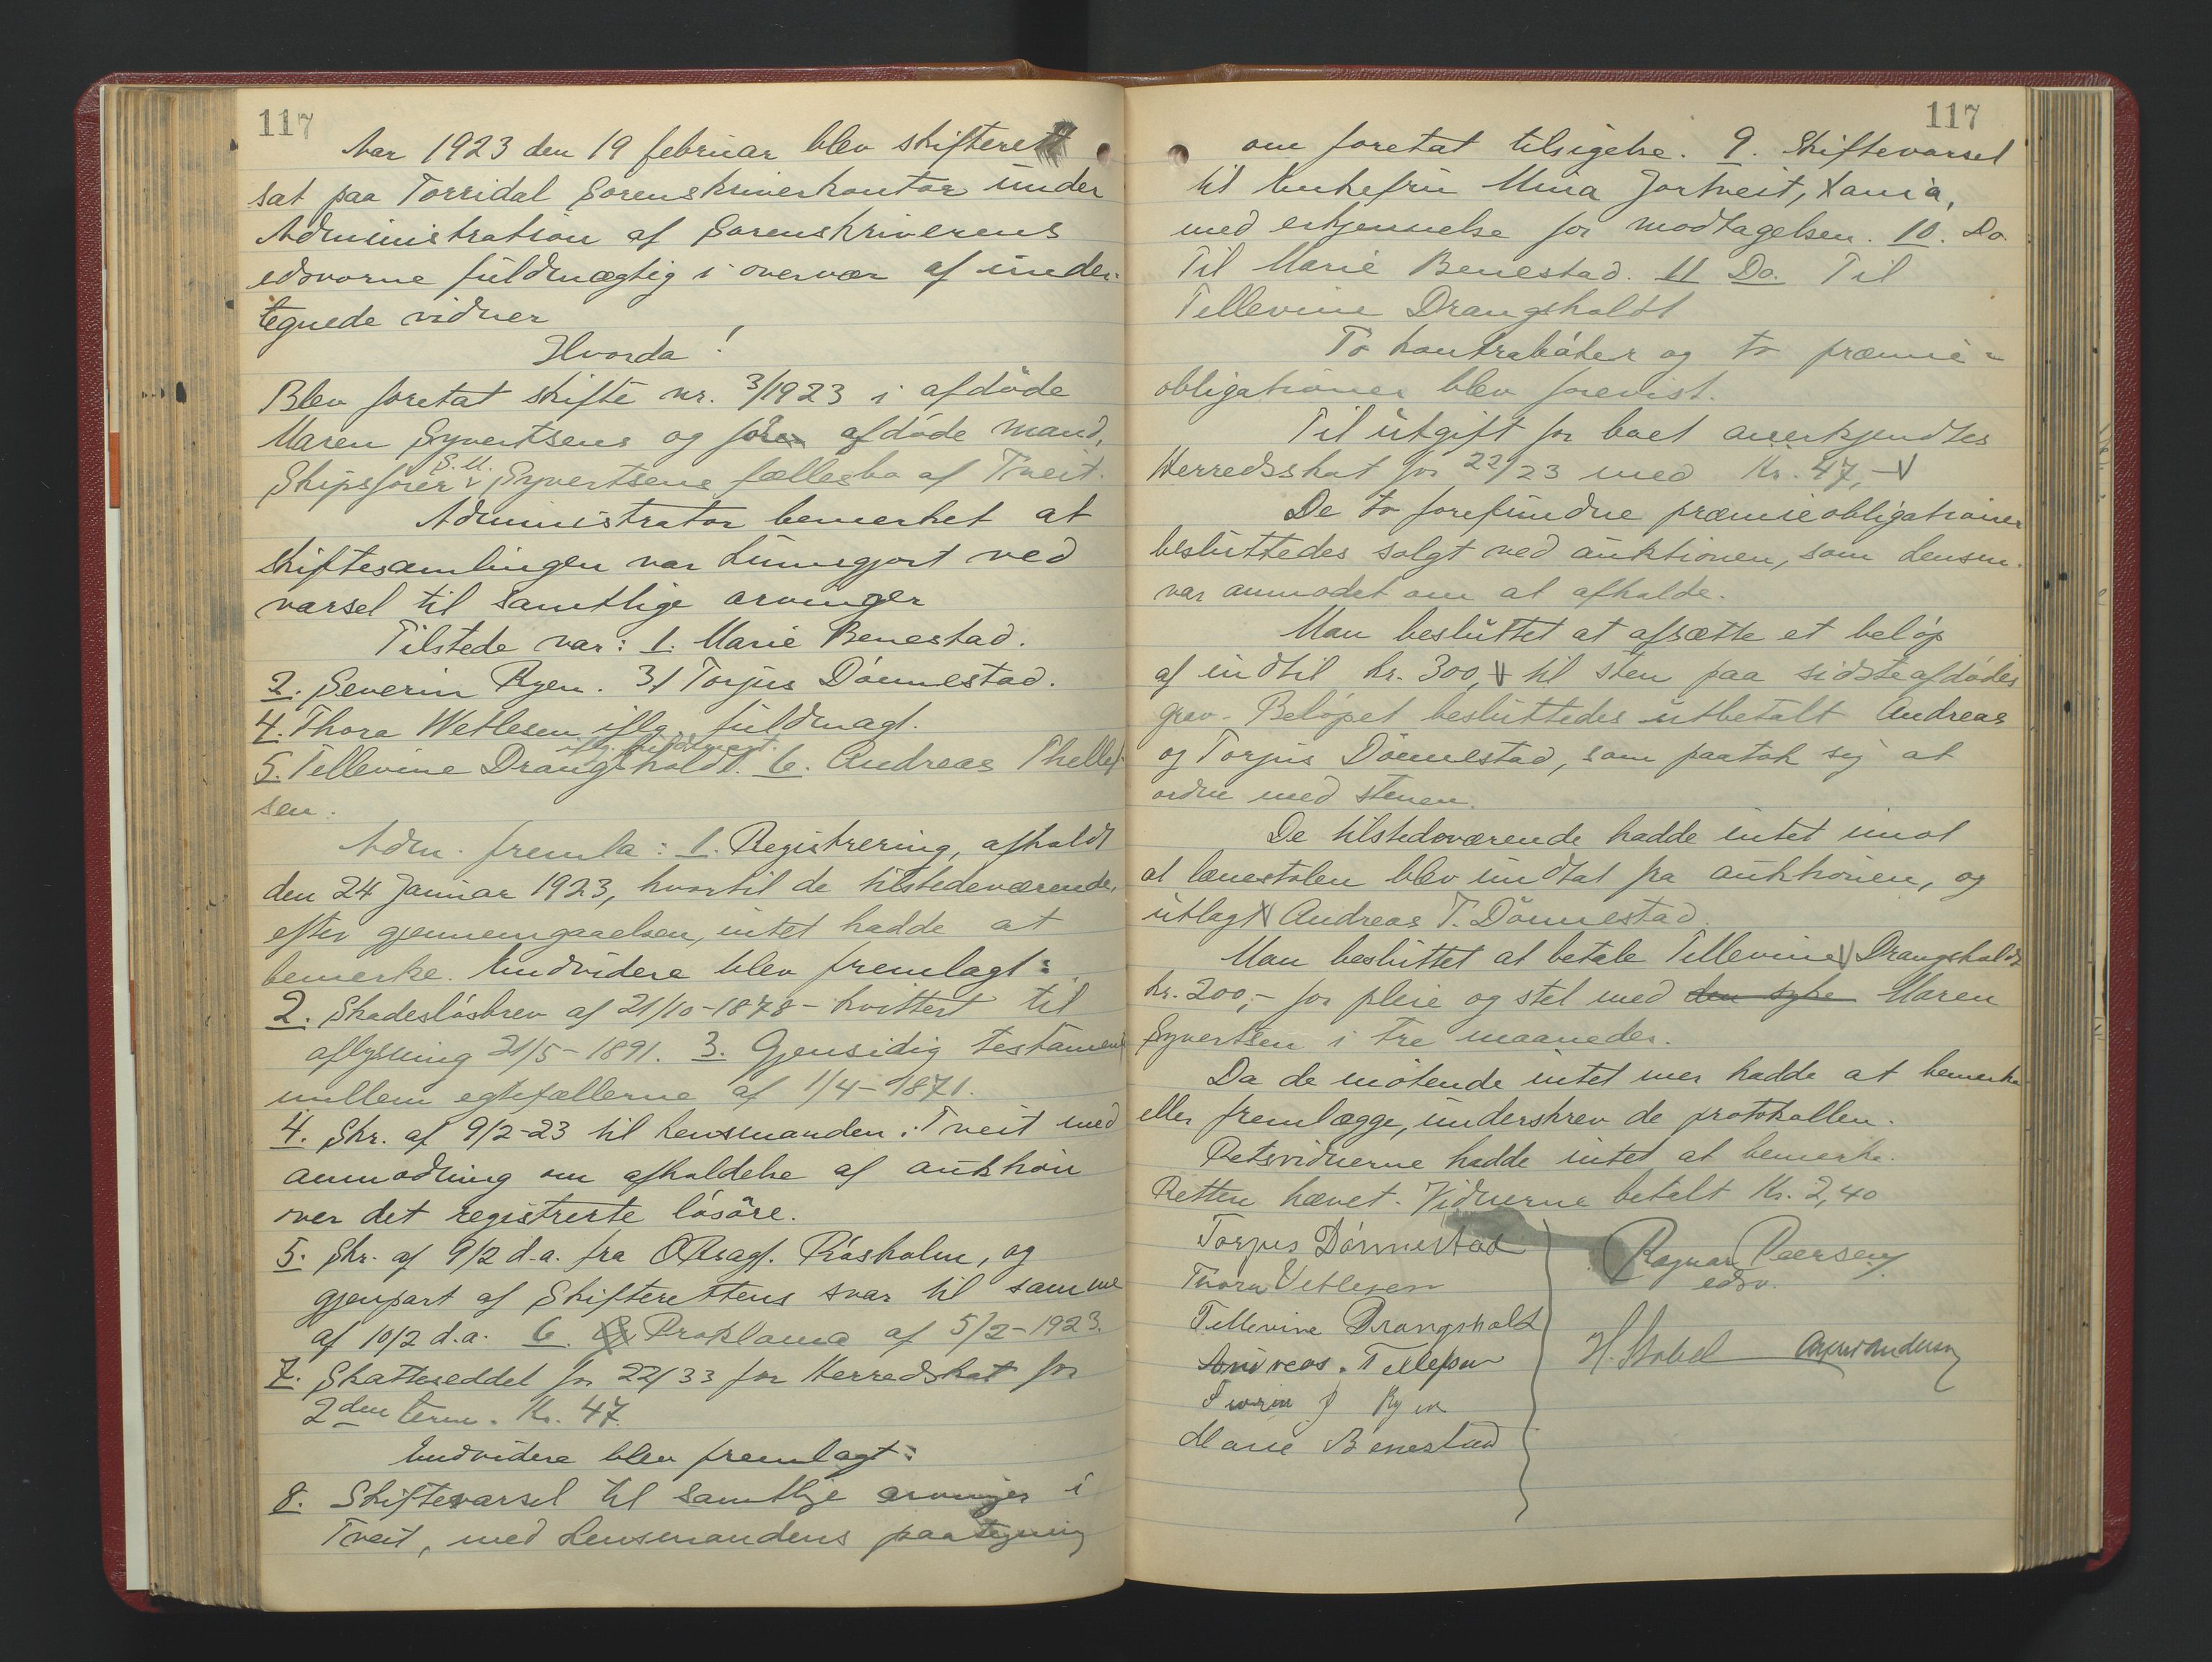 117
Aar 1923 den 19 februar blev skifterett
sat paa Torridal Sorenskriverkontor under
Administration af Sorenskriverens
edsvorne fuldmægtig i overvær af under-
tegnede vidner
Hvorda!
Blev foretat skifte nr. 3/1923 i afdöde
Maren Syvertsens og före afdöde mand,
S. M.
Skipsförer Syvertsens fællesbo af Tveit.
Administrator bemerket at
skiftesamlingen var kunngjort ved
varsel til samtlige arvinger
Tilstede var: 1. Marie Benestad.
2. Severin Ryen. 3/ Torjus Dönnestad.
4. Thora Wetlesen iflg. fuldmagt.
iflg. fuldmagt.
5. Tellevine Drangsholdt. 6. Andreas Thellef-
sen.
Adm. fremla: 1. Registrering, afholdt
den 24 Januar 1923, hvortil de tilstedeværende,
efter gjennemgaaelsen, intet hadde at
bemerke. Endvidere blev fremlagt:
2. Skadeslösbrev af 21/10-1878- kvittert til
aflysning 21/5-1891. 3. Gjensidig testament
mellem egtefællerne af 1/4-1871.
4. Skr. af 9/2-23 til lensmanden i Tveit med
anmodning om afholdelse af auktion
over det registrerte lösöre.
5. Skr. af 9/2 d.a. fra ORsagf. Rösholm, og
gjenpart af Skifterettens svar til samme
af 10/2 d.a. 6. Proklama af 5/2-1923.
7. Skatteseddel for 22/33 for Herredskat for
2den term. Kr. 47.
Endvidere blev fremlagt:
8. Skiftevarsel til samtlige arvinger i
Tveit, med Lensmandens paategning
117
om foretat tilsigelse. 9. Skiftevarsel
til Enkefru Mina Jortveit, Xania,
med erkjennelse for modtagelsen. 10. Do.
Til Marie Benestad. 11 Do. Til
Tellevine Drangsholdt
To kontraböker og to præmie-
obligationer blev forevist.
Til utgift for boet anerkjendtes
Herredsskat for 22/23 med Kr. 47,-
De to forefundne præmieobligationer
besluttedes solgt ved auktionen, som Lensm.
var anmodet om at afholde.
Man besluttet at afsætte et belöp
af indtil kr. 300,- til sten paa sidsteafdödes
grav. Belöpet besluttedes utbetalt Andreas
og Torjus Dönnestad, som paatok sig at
ordne med stenen.
De tilstedeværende hadde intet imot
at lænestolen blev undtat fra auktionen, og
utlagt Andreas T. Dönnestad.
Man besluttet at betale Tellevine Drangsholdt
kr. 200,- for pleie og stel med den syke Maren
Syvertsen i tre maaneder.
Da de mötende intet mer hadde at bemerke
eller fremlægge, underskrev de protokollen.
Retsvidnerne hadde intet at bemerke.
Retten hævet. Vidnerne betalt Kr. 2,40
Torjus Dönnestad
Thora Vetlesen
Tellevine Drangsholt
Andreas. Tellefsen
Sverin J Ryen
Marie Benestad
Ragnar Pæersen
edsv.
H. Stabel